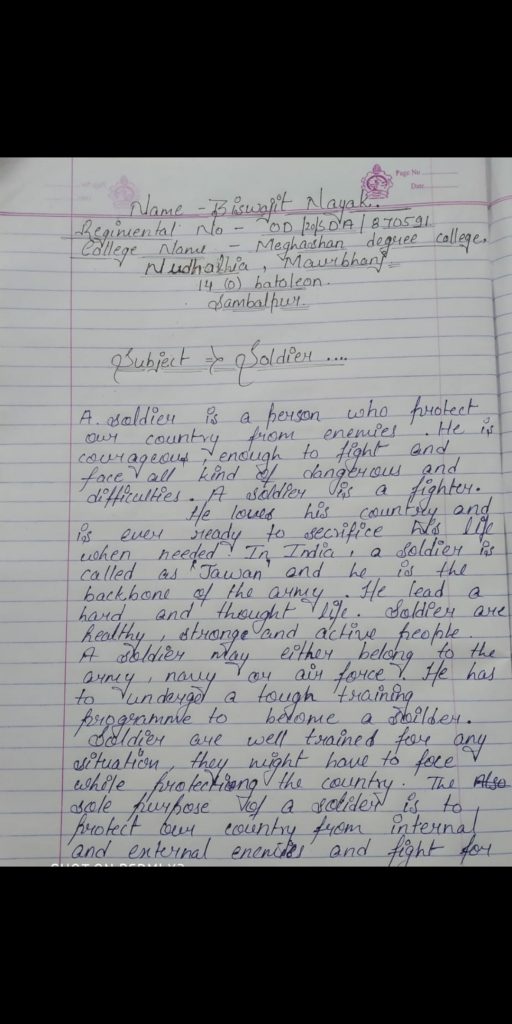 Page No
Date
Name - Biswajit Nayak.
Regimental No - OD/20/SDA/870591
College Name - Meghashan degree college.
Nudhathia, Maurbhanj
14 (O) batoleon.
Sambalpur.
Subject => Soldier ....
A. soldier is a person who protect
our country from enemies. He is
courageous enough to fight and
face all kind of dangerous and
difficulties. A soldier is a fighter.
He loves his country and
is ever ready to secrifice his life
when needed. In India, a soldier is
called as 'Jawan' and he is the
backbone of the army. He lead a
hard and thought life. Soldier are
healthy, stronge and active people.
A soldier may either belong to the
army, navy or air force. He has
to undergo a tough training
programme to become a soilder.
Soldier are well trained for any
situation, they might have to face
while protectiong the country. The Also
sole purpose of a solider is to
protect our country from internal
and external enemies and fight for
SHOT ON REDMI